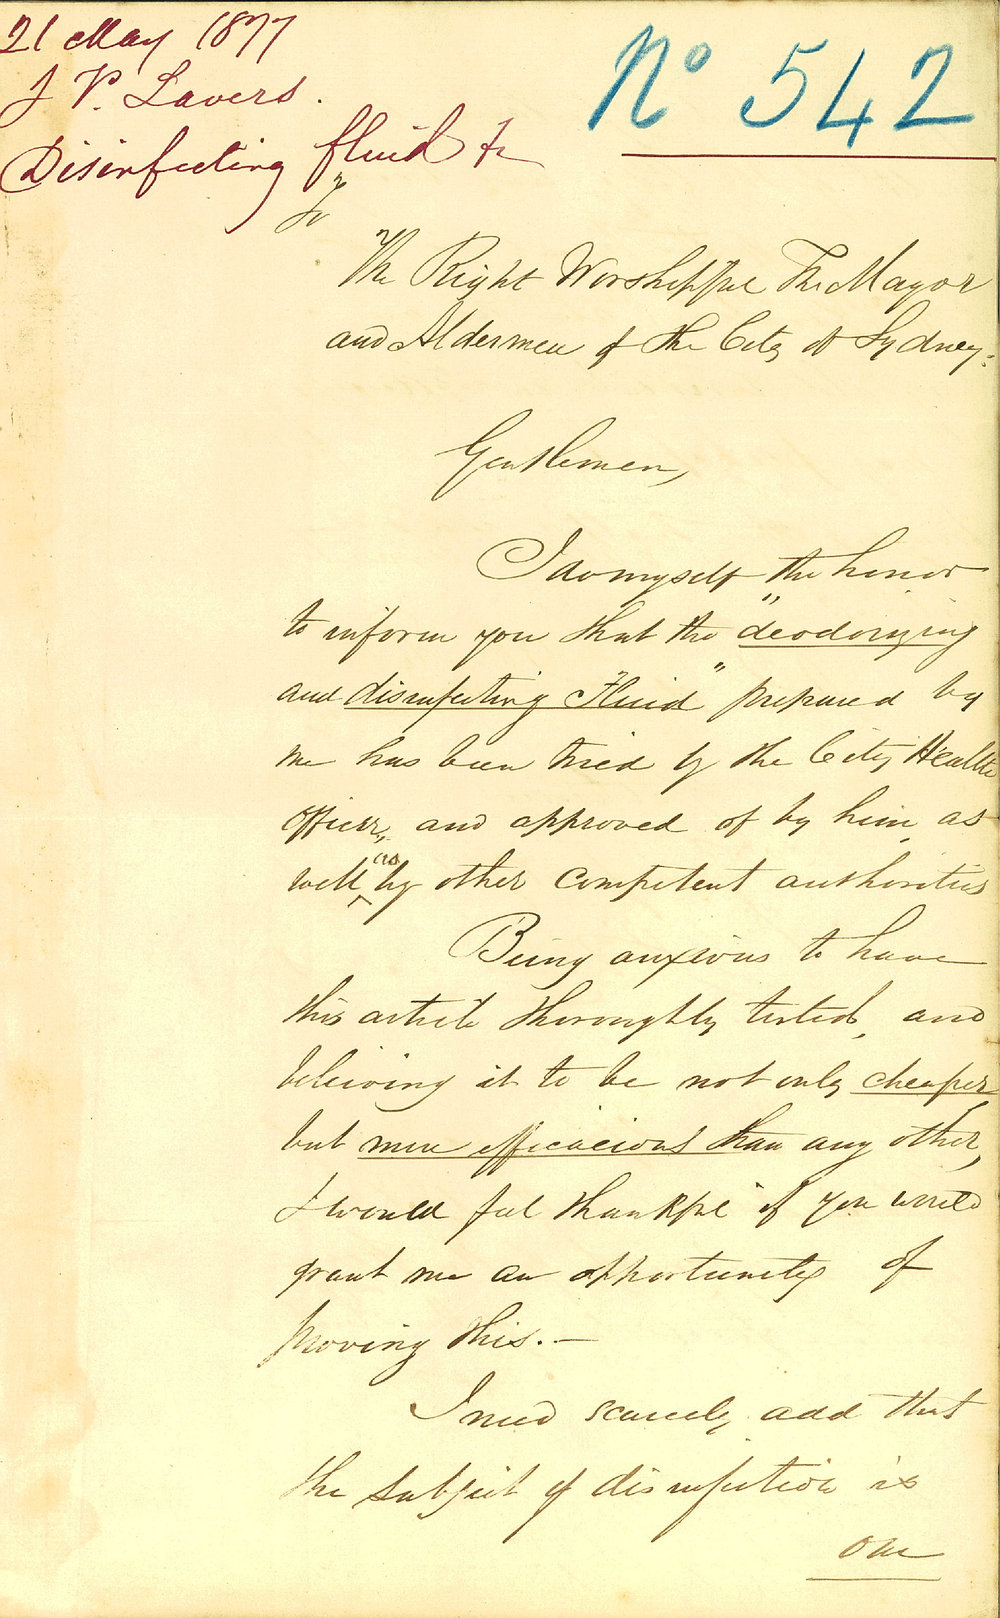 21 May 1877
J V. Lavers.
Disinfecting fluid &c
No 542
To
The Right Worshipful The Mayor
and Aldermen of the City of Sydney.
Gentlemen,
I do myself the honor
to inform you that the "deodorizing
and disinfecting "Fluid" prepared by
me has been tried by the City Health
officer, and approved of by him, as
well as by other competent authorities
Being anxious to have
this article thoroughly tested, and
believing it to be not only cheaper
but more efficacious than any other,
I would feel thankful if you would
grant me an opportunity of
proving this. —
I need scarcely add that
the subject of disinfection is
one